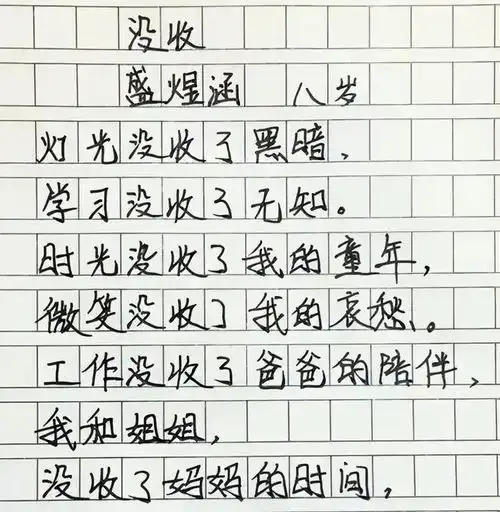 没收
盛煜涵 八岁
灯光没收了黑暗，
学习没收了无知。
时光没收了我的童年，
微笑没收了我的哀愁、。
工作没收了爸爸的陪伴，
我和姐姐，
没收了妈妈的时间，